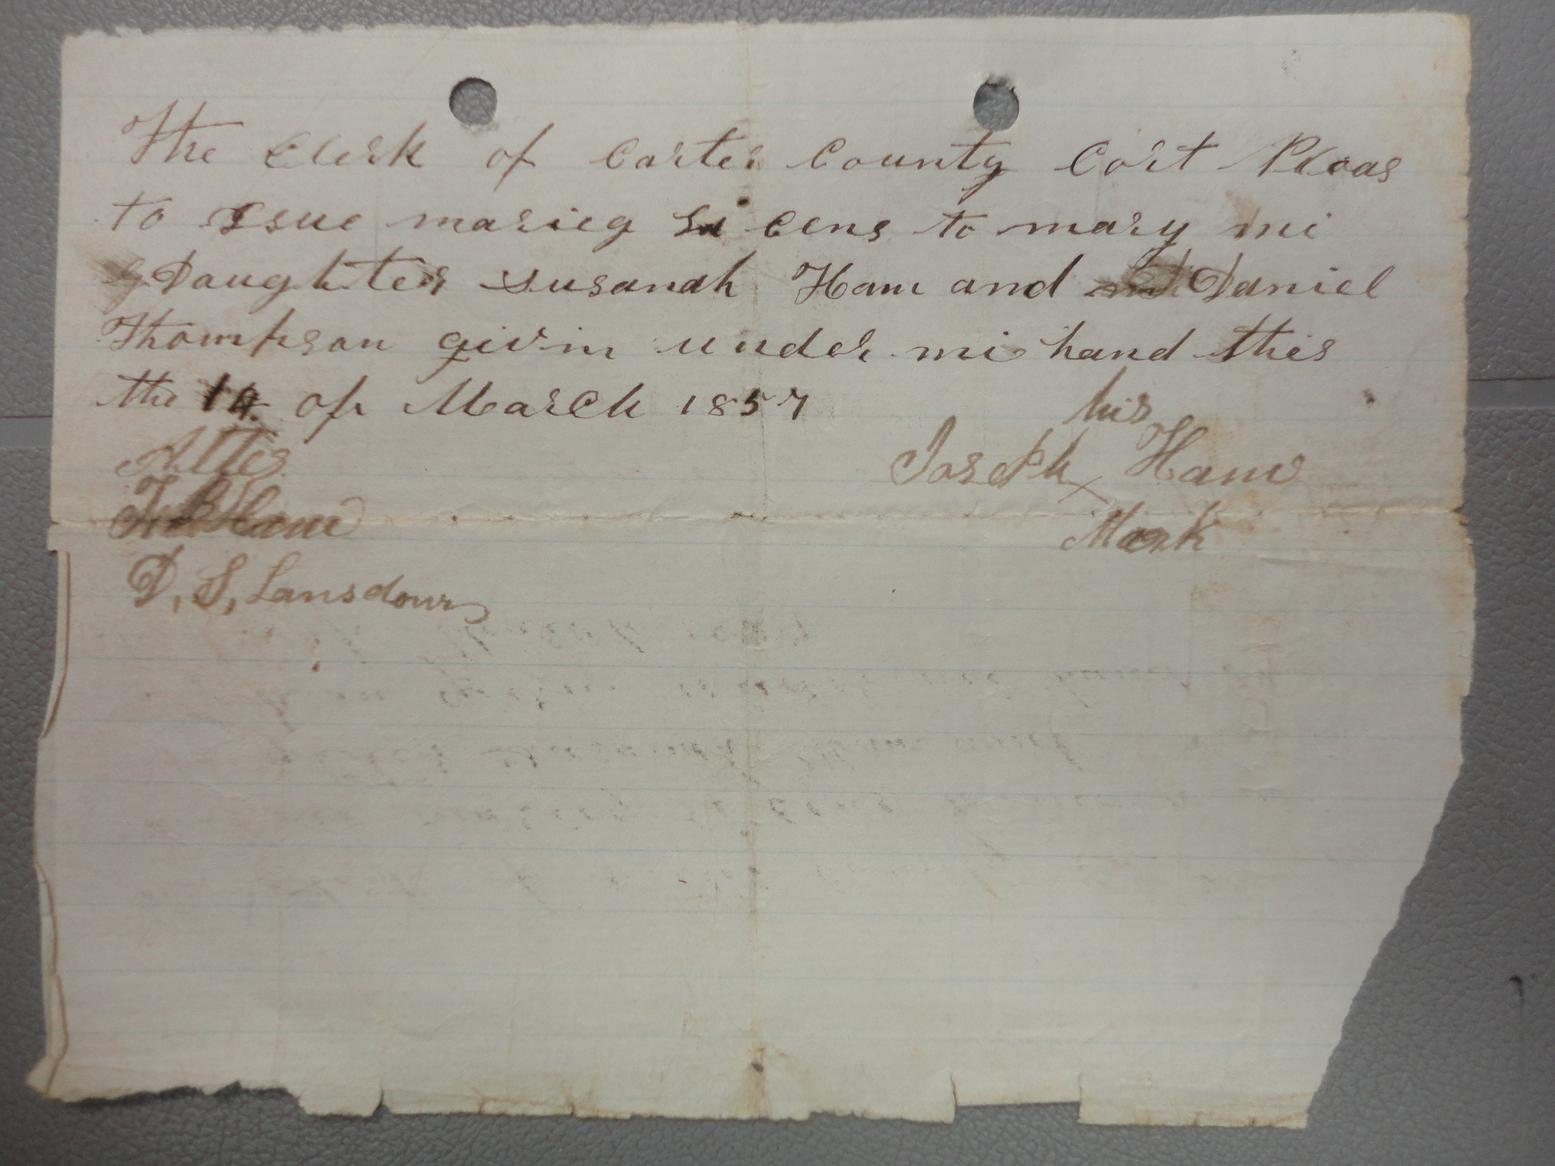 The Clerk of Carter County Cort Pleas
to Issue marieg Li cens to mary mi
Daughter Susanah Ham and Daniel
Thompson givin under mi hand this
the 14 of March 1857
his
Attes
Joseph x Ham
Ham
Mark
D, S, Lansdown